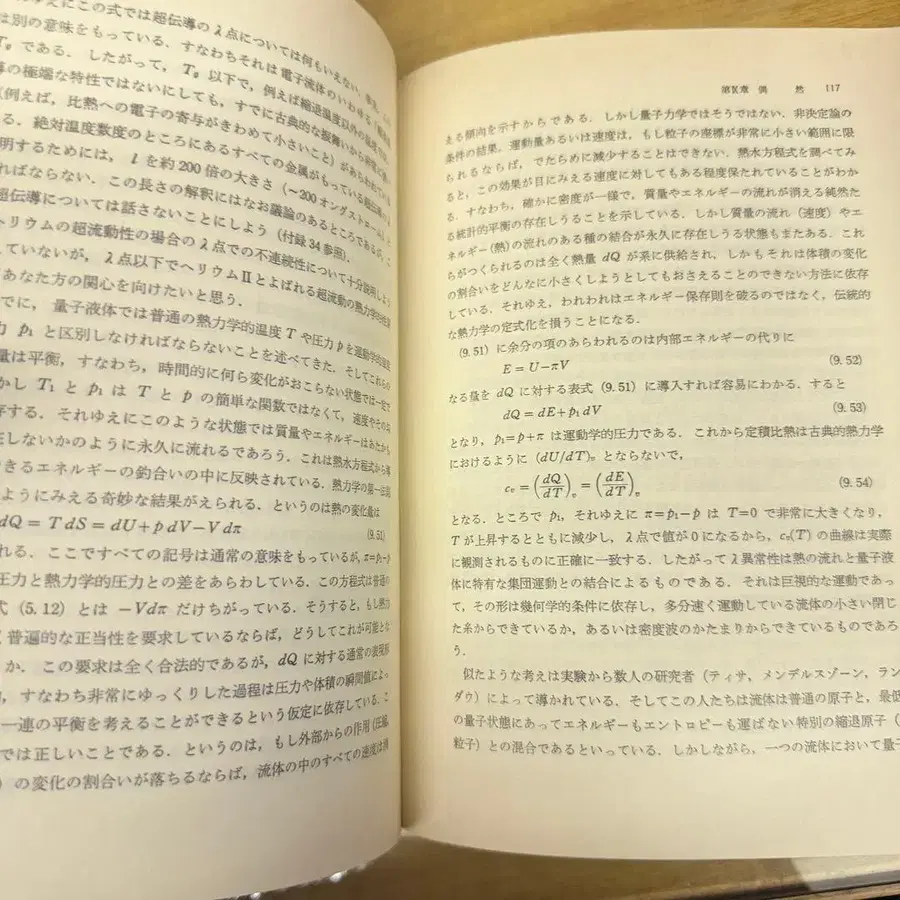 ゆえにこの式では超伝導のλ点については何もいえない.
は別の意味をもっている. すなわちそれは電子流体のいわゆる
T₉ である. したがって, T₉ 以下で, 例えば縮退温度以外の
導の極端な特性ではないにしても, すでに古典的な振舞いから非常に
(例えば, 比熱への電子の寄与がきわめて小さいこと) があらわれている
る. 絶対温度数度のところにあるすべての金属がもっている超伝導の
明するためには, l を約200倍の大きさ (~200オングストローム) と
ればならない. この長さの解釈にはなお議論のあるところであるが, こ
超伝導については話さないことにしよう (付録34参照).
ヘリウムの超流動性の場合のλ点での不連続性について十分説明しよう
していないが, λ点以下でヘリウムⅡとよばれる超流動の熱力学的性質
あなた方の関心を向けたいと思う.
でに, 量子液体では普通の熱力学的温度 T や圧力 p を運動学的温度
力 p₁ と区別しなければならないことを述べてきた. そしてこれらの
量は平衡, すなわち, 時間的に何ら変化がおこらない状態では一定で
かし T₁ と p₁ は T と p の簡単な関数ではなくて, 速度やその
存する. それゆえにこのような状態では質量やエネルギーはあたかも
在しないかのように永久に流れるであろう. これは熱水方程式から導
できるエネルギーの釣合いの中に反映されている. 熱力学の第一法則
ようにみえる奇妙な結果がえられる. というのは熱の変化量は
dQ = T dS = dU + p dV − V dπ (9.51)
れる. ここですべての記号は通常の意味をもっているが, π=p₁−p
圧力と熱力学的圧力との差をあらわしている. この方程式は普通の
式 (5.12) とは −Vdπ だけちがっている. そうすると, もし熱力
く普遍的な正当性を要求しているならば, どうしてこれが可能とな
か. この要求は全く合法的であるが, dQ に対する通常の表現形
, すなわち非常にゆっくりした過程は圧力や体積の瞬間値によっ
一連の平衡を考えることができるという仮定に依存している. こ
では正しいことである. というのは, もし外部からの作用 (圧縮,
) の変化の割合いが落ちるならば, 流体の中のすべての速度は消
第Ⅸ章 偶 然 117
える傾向を示すからである. しかし量子力学ではそうではない. 非決定論の
条件の結果, 運動量あるいは速度は, もし粒子の座標が非常に小さい範囲に限
られるならば, でたらめに減少することはできない. 熱水方程式を調べてみ
ると, この効果が目にみえる速度に対してもある程度保たれていることがわか
る. すなわち, 確かに密度が一様で, 質量やエネルギーの流れが消える純然た
る統計的平衡の存在しうることを示している. しかし質量の流れ (速度) やエ
ネルギー(熱) の流れのある種の結合が永久に存在しうる状態もまたある. これ
らがつくられるのは全く熱量 dQ が系に供給され, しかもそれは体積の変化
の割合いをどんなに小さくしようとしてもおさえることのできない方法に依存
している. それゆえ, われわれはエネルギー保存則を破るのではなく, 伝統的
な熱力学の定式化を損うことになる.
(9.51) に余分の項のあらわれるのは内部エネルギーの代りに
E = U−πV (9.52)
なる量を dQ に対する表式 (9.51) に導入すれば容易にわかる. すると
dQ = dE + p₁ dV (9.53)
となり, p₁=p+π は運動学的圧力である. これから定積比熱は古典的熱力学
におけるように (dU/dT)ᵥ とならないで,
cᵥ = (dQ/dT)ᵥ = (dE/dT)ᵥ (9.54)
となる. ところで p₁, それゆえに π=p₁−p は T=0 で非常に大きくなり,
T が上昇するとともに減少し, λ点で値が0になるから, cᵥ(T) の曲線は実際
に観測されるものに正確に一致する. したがってλ異常性は熱の流れと量子液
体に特有な集団運動との結合によるものである. それは巨視的な運動であっ
て, その形は幾何学的条件に依存し, 多分速く運動している流体の小さい閉じ
た糸からできているか, あるいは密度波のかたまりからできているものであろ
う.
似たような考えは実験から数人の研究者 (ティサ, メンデルスゾーン, ラン
ダウ) によって導かれている. そしてこの人たちは流体は普通の原子と, 最低
の量子状態にあってエネルギーもエントロピーも運ばない特別の縮退原子 (
粒子) との混合であるといっている. しかしながら, 一つの流体において量子